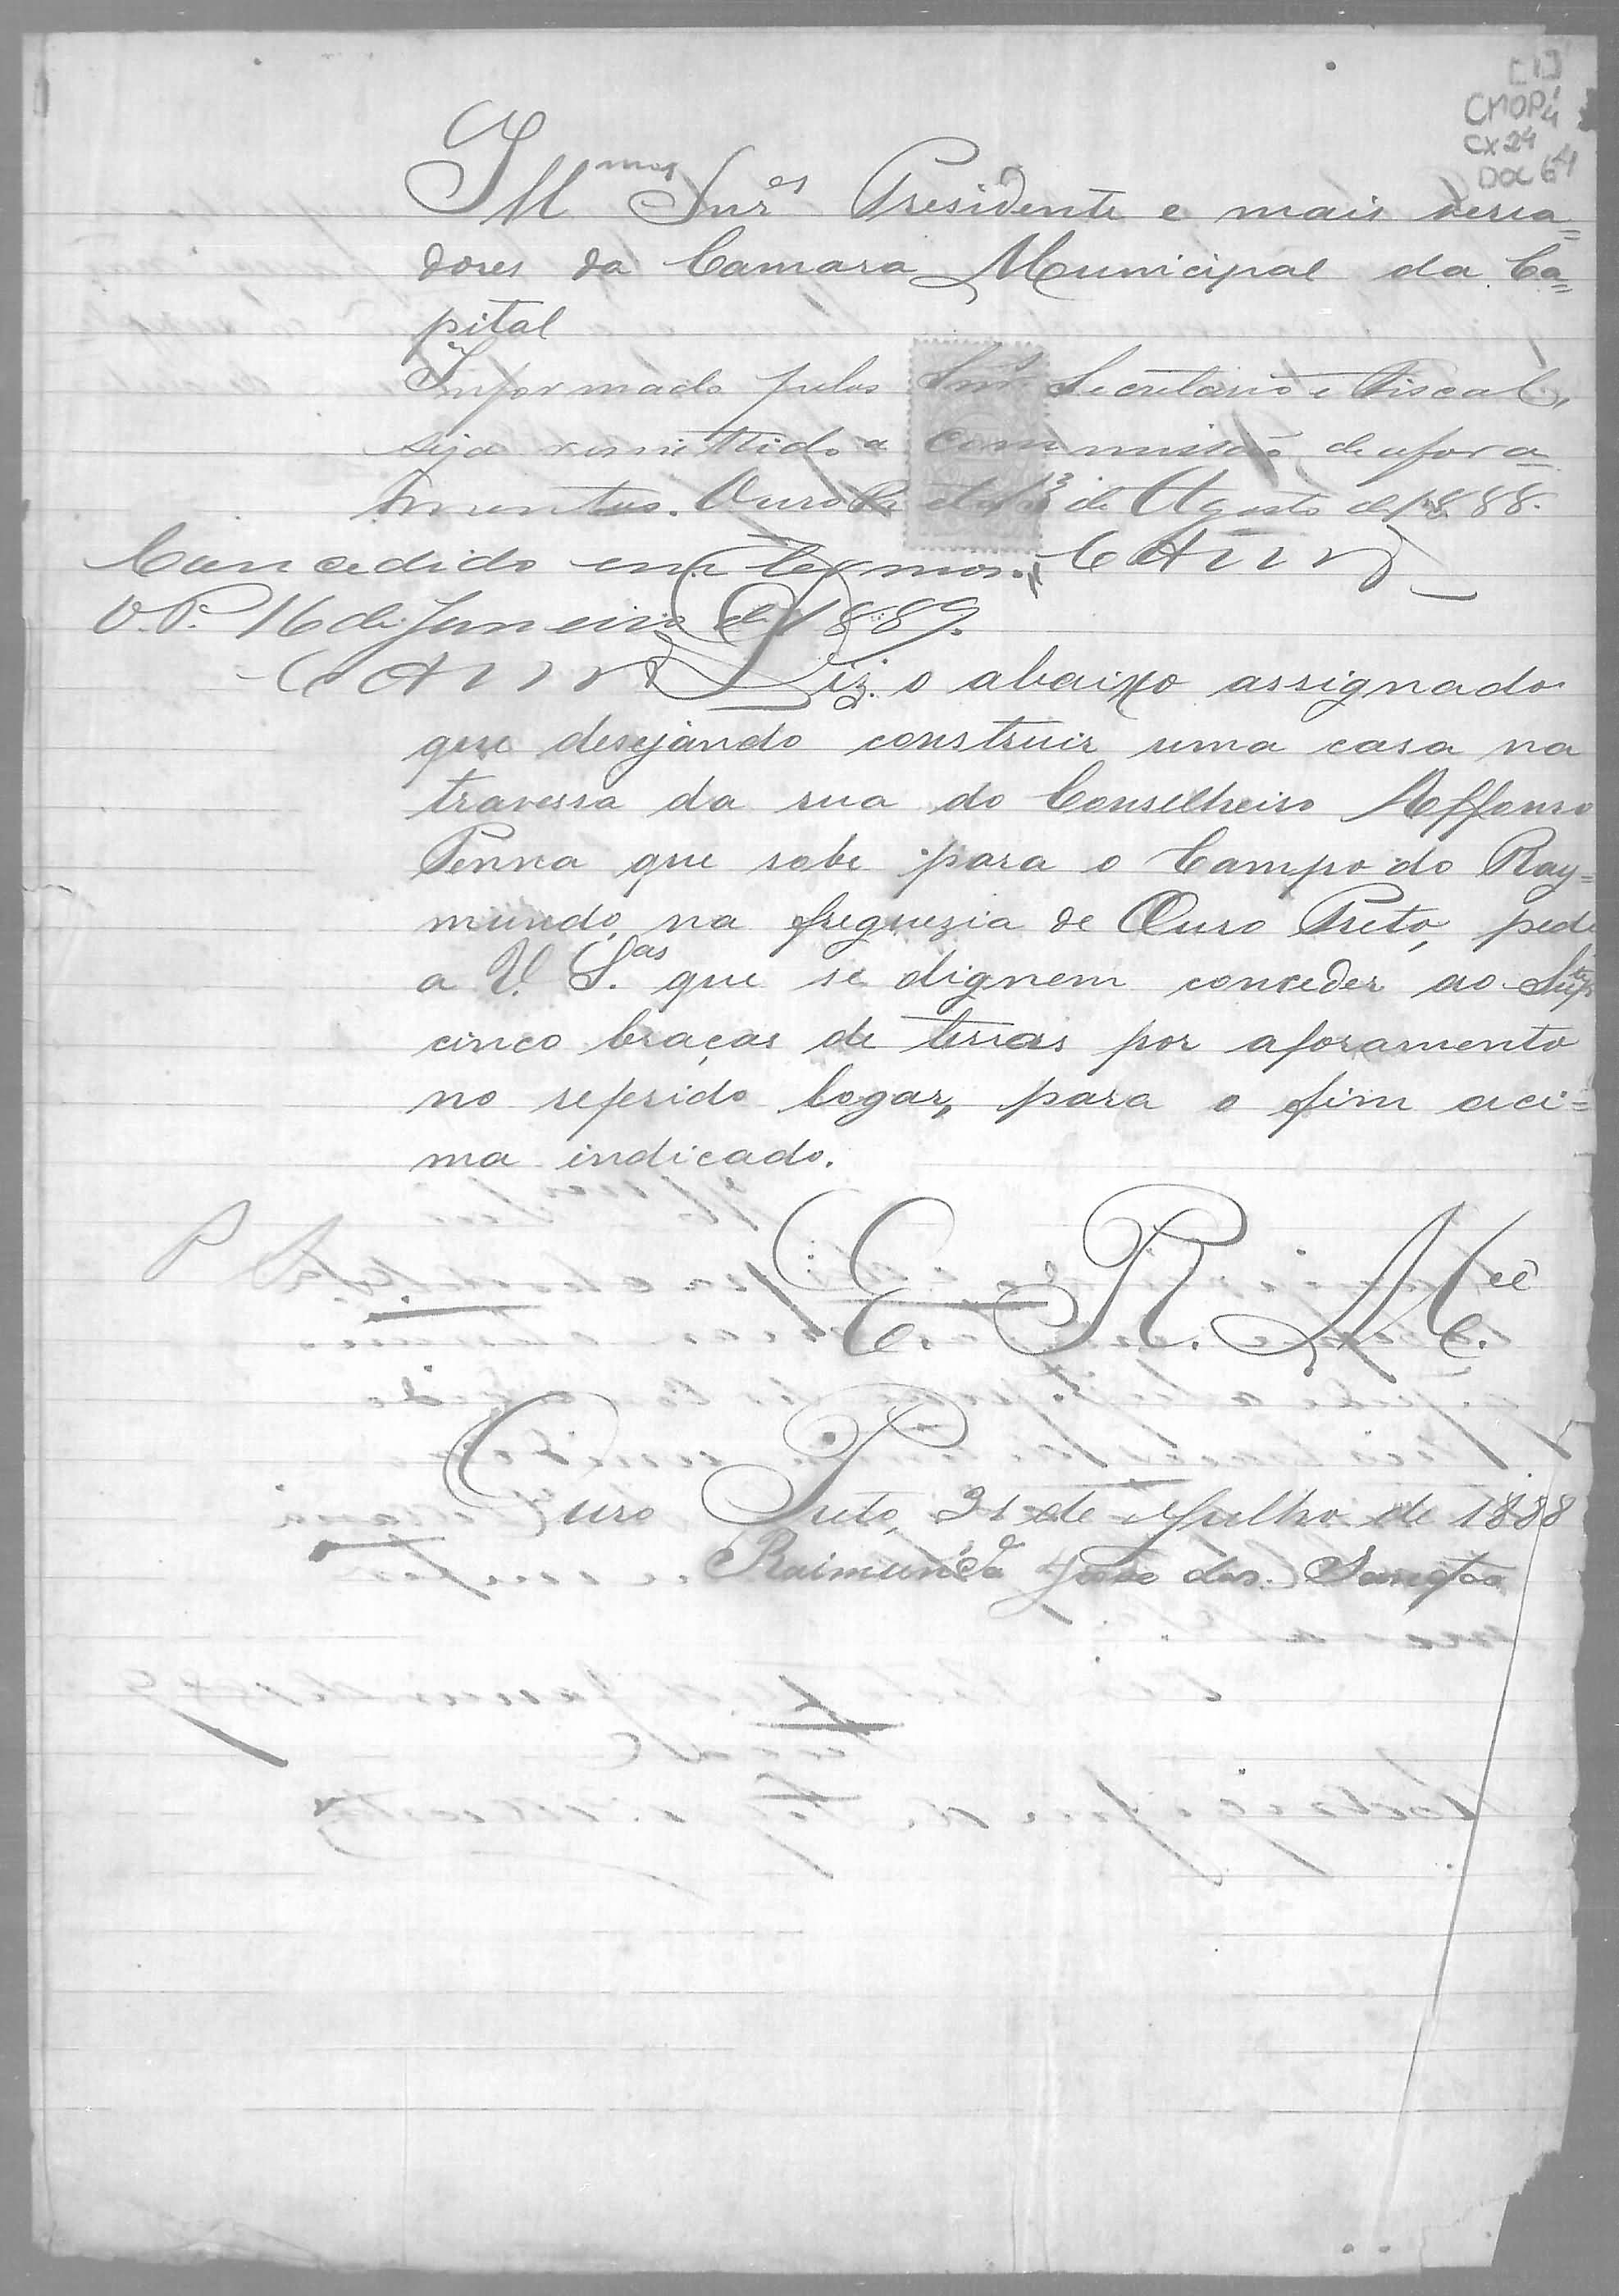 [1]
CMOP
CX 24
DOC 64
Illmos Snres Presidente e mais verea=
dores da Camara Municipal da Ca=
pital
Informado pelos Snrs. Secretario e Fiscal,
seja remettido a commissão de afora-
mentos. Ouro Preto, 13 de Agosto de 1888.
Concedido em termos.
O. P. 16 de Janeiro de 1889.
Diz o abaixo assignado
que desejando construir uma casa na
travessa da rua do Conselheiro Affonso
Penna que sobe para o Campo do Ray=
mundo, na freguezia de Ouro Preto, pede
a V. S.as que se dignem conceder ao Supte
cinco braças de terras por aforamento
no referido logar, para o fim aci=
ma indicado.
E. R. M.cê
Ouro Preto, 21 de Julho de 1888
Raimundo José dos Sanctos